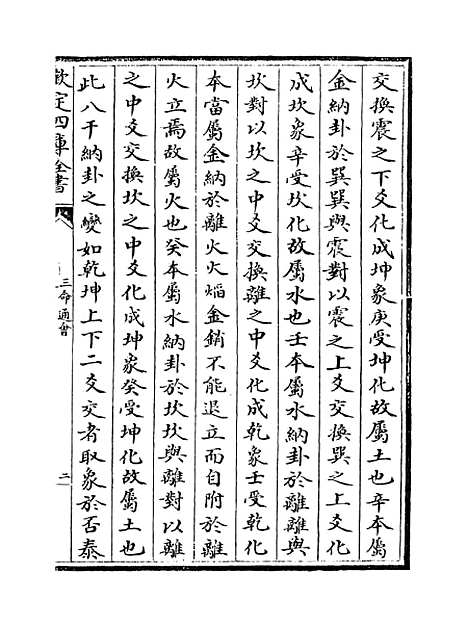 交換震之下爻化成坤象庚受坤化故屬土也辛本屬
金納卦於巽巽與震對以震之上爻交換巽之上爻化
成坎象辛受坎化故屬水也壬本屬水納卦於離離與
坎對以坎之中爻交換離之中爻化成乾象壬受乾化
本當屬金納於離火火焰金銷不能退立而自附於離
火立焉故屬火也癸本屬水納卦於坎坎與離對以離
之中爻交換坎之中爻化成坤象癸受坤化故屬土也
此八干納卦之變如乾坤上下二爻交者取象於否泰
欽定四庫全書
三命通會
二